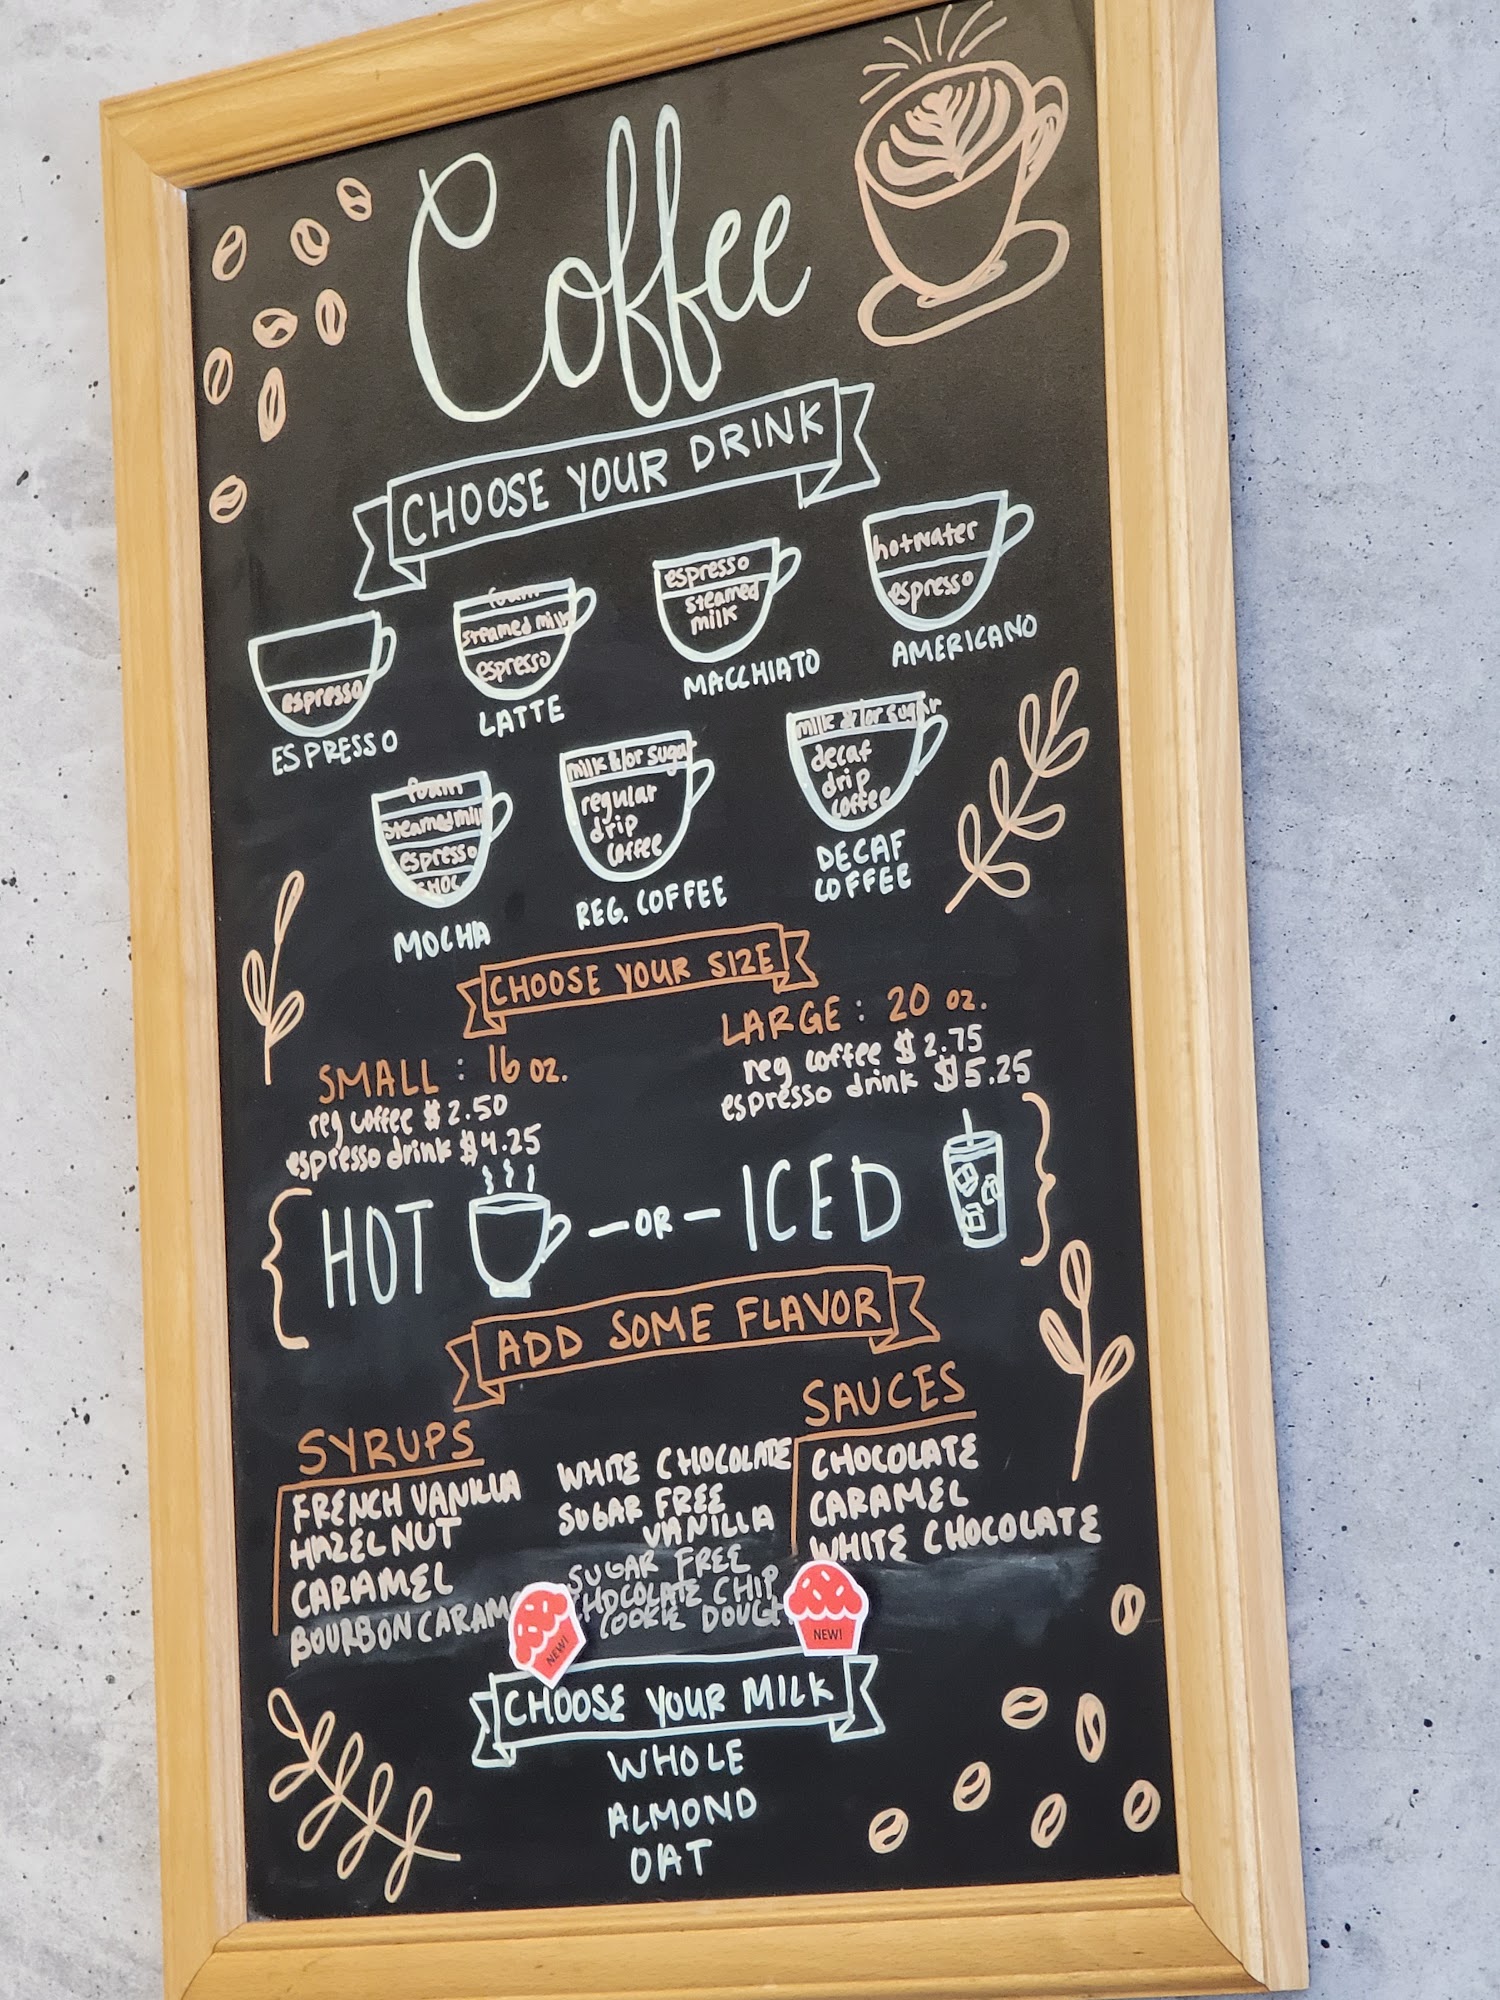 Coffee
CHOOSE YOUR DRINK
espresso
ESPRESSO
foam
steamed milk
espresso
LATTE
espresso
steamed
milk
MACCHIATO
hot water
espresso
AMERICANO
foam
steamed milk
espresso
CHOC
MOCHA
milk &/or sugar
regular
drip
coffee
REG. COFFEE
milk &/or sugar
decaf
drip
coffee
DECAF
COFFEE
CHOOSE YOUR SIZE
SMALL : 16 oz.
reg coffee $2.50
espresso drink $4.25
LARGE : 20 oz.
reg coffee $2.75
espresso drink $5.25
HOT -OR- ICED
ADD SOME FLAVOR
SYRUPS
FRENCH VANILLA
HAZELNUT
CARAMEL
BOURBON CARAM
WHITE CHOCOLATE
SUGAR FREE
VANILLA
SUGAR FREE
CHOCOLATE CHIP
COOKIE DOUGH
SAUCES
CHOCOLATE
CARAMEL
WHITE CHOCOLATE
NEW!
NEW!
CHOOSE YOUR MILK
WHOLE
ALMOND
OAT